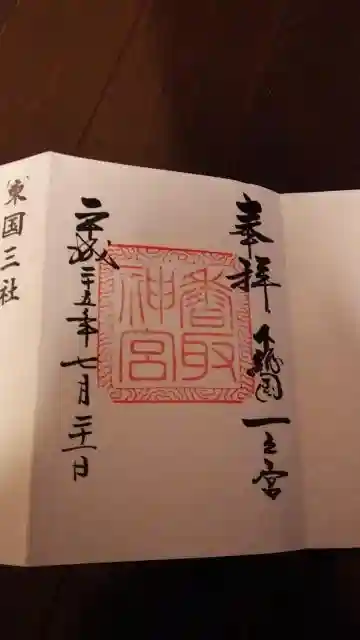 奉拝
下総国
一之宮
香取
神宮
平成二十五年七月二十一日
東国三社